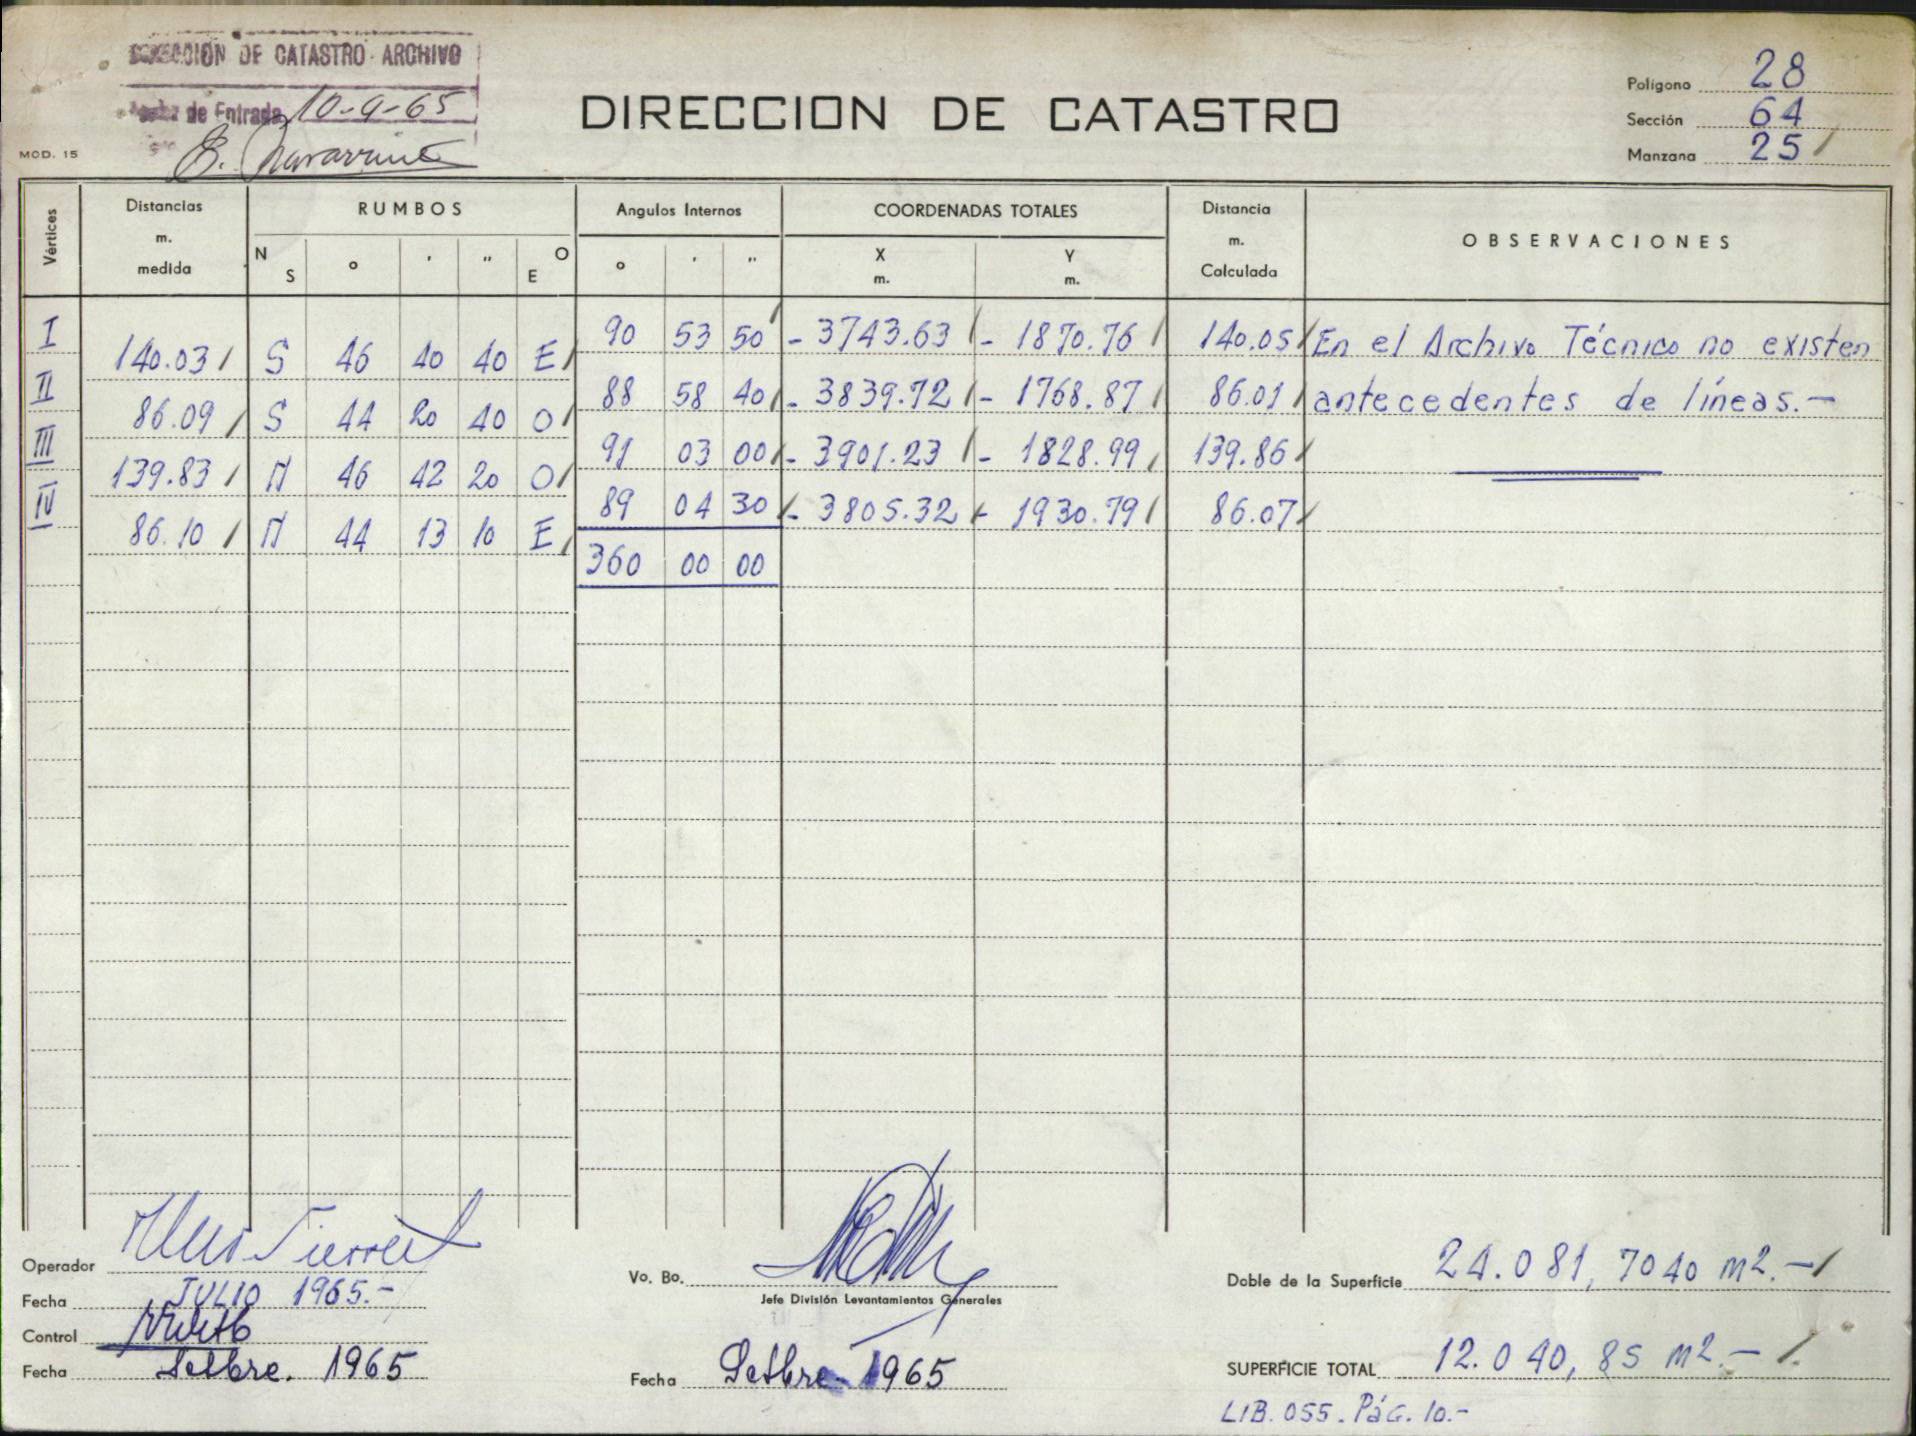 DIRECCION DE CATASTRO ARCHIVO
Fecha de Entrada 10-9-65
MOD. 15
DIRECCION DE CATASTRO
Polígono 28
Sección 64
Manzana 25
Vértices Distancias m. medida RUMBOS Angulos Internos COORDENADAS TOTALES Distancia m. Calculada OBSERVACIONES
N S o ' " E O o ' " X m. Y m.
I 90 53 50 - 3743.63 - 1870.76 140.05 En el Archivo Técnico no existen
140.03 S 46 40 40 E
II 88 58 40 - 3839.72 - 1768.87 86.01 antecedentes de líneas.-
86.09 S 44 20 40 O
III 91 03 00 - 3901.23 - 1828.99 139.86
139.83 N 46 42 20 O
IV 89 04 30 - 3805.32 - 1930.79 86.07
86.10 N 44 13 10 E
360 00 00
Operador
Fecha JULIO 1965.-
Control
Fecha Setbre. 1965
Vo. Bo.
Jefe División Levantamientos Generales
Fecha Setbre 1965
Doble de la Superficie 24.081,7040 m2.-
SUPERFICIE TOTAL 12.040,85 m2.-
LIB. 055. Pág. 10.-